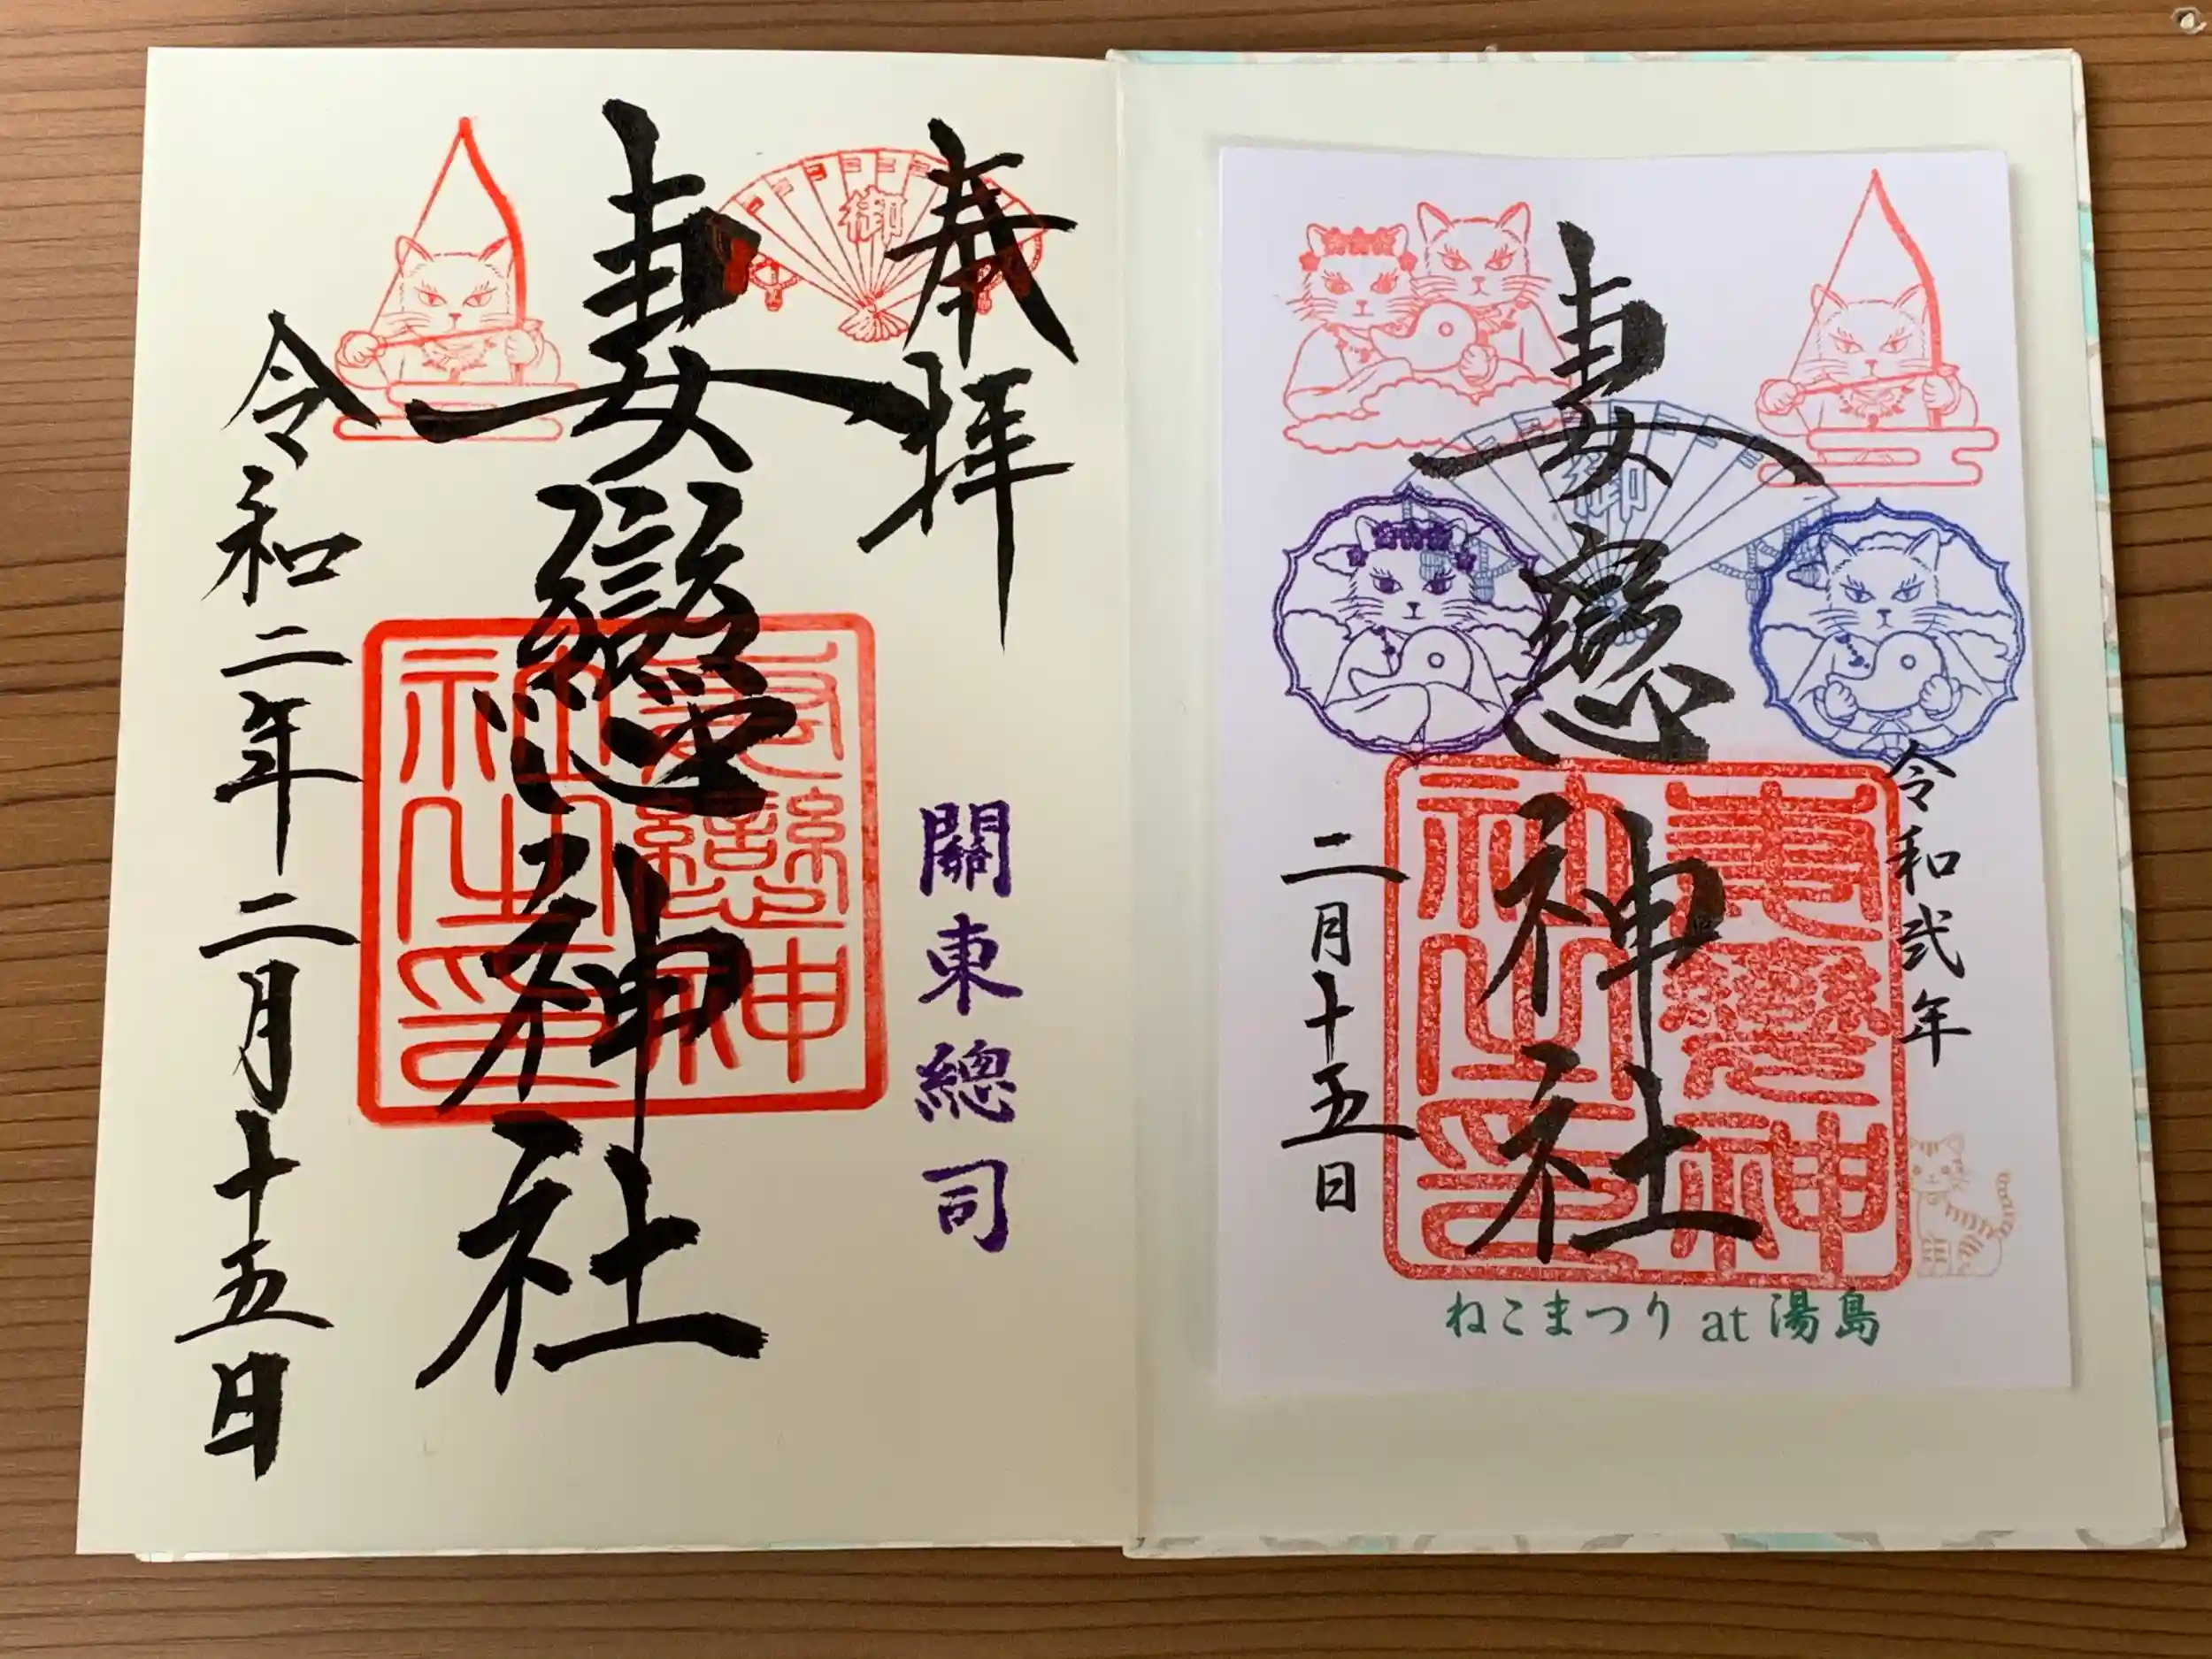 奉拝
御
關東總司
妻戀神社
妻戀神社之印
令和二年二月十五日
御
令和弐年
妻恋神社
妻戀神社之印
二月十五日
ねこまつり at 湯島